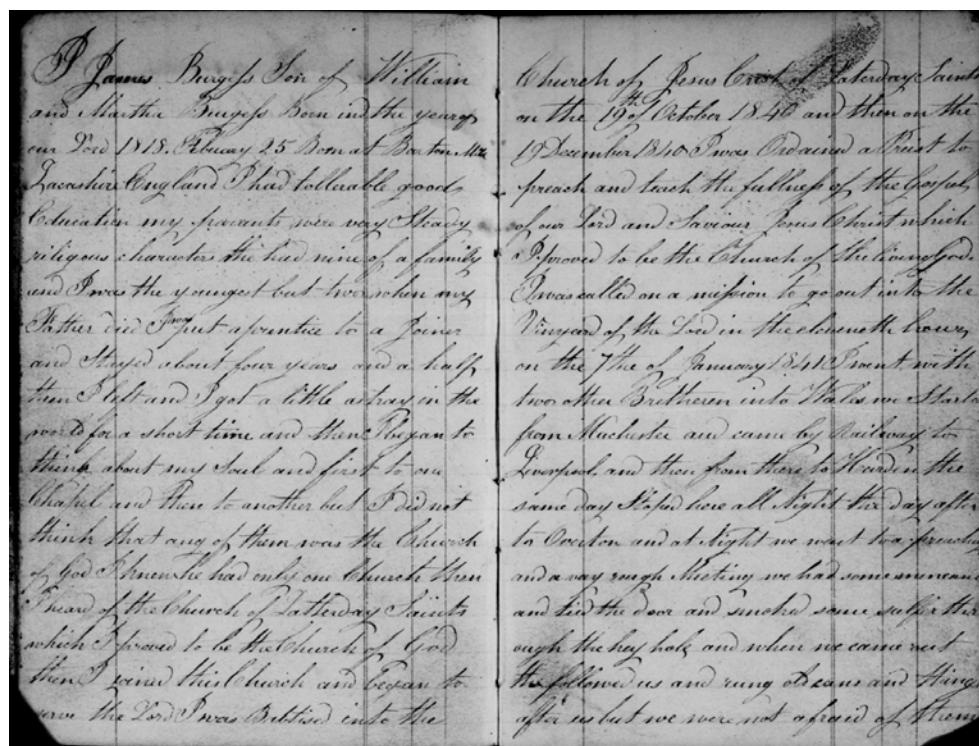 I James Burgess Son of William
and Martha Burgess Born in the year of
our Lord 1818. Febuary 25 Born at Barton
Lacashire England I had tollerable good
Education my parants were very Steady
riligious characters the had nine of a family
and I was the youngest but two when my
Father died I was put aprintice to a Joiner
and Stayed about four years and a half
then I left and I got a little astray in the
world for a short time and then I began to
think about my Soul and first to one
Chapel and then to another but I did not
think that any of them was the Church
of God I knew he had only one Church then
I heard of the Church of Latterday Saints
which I proved to be the Church of God
then I joined this Church and Began to
serve the Lord I was Babtised into the
Church of Jesus Crist of Laterday Saints
on the 19th of October 1840 and then on the
19 December 1840 I was Ordained a Preist to
preach and teach the fullness of the Gospel
of our Lord and Saviour Jesus Christ which
I proved to be the Church of the living God.
I was called on a mission to go out into the
Vinyard of the Lord in the eleventh hour
on the 7th of January 1841 I went with
two other Bretheren into Wales we Started
from Machester and came by Railway to
Liverpool and then from there to Harden the
same day Stoped here all Night the day after
to Overton and at Night we went to a preaching
and a vary rough Meeting we had some men came
and tied the door and smoked some sulfer thr
ough the key hole and when we came out
the followed us and rung old cans and things
after us but we were not afraid of them